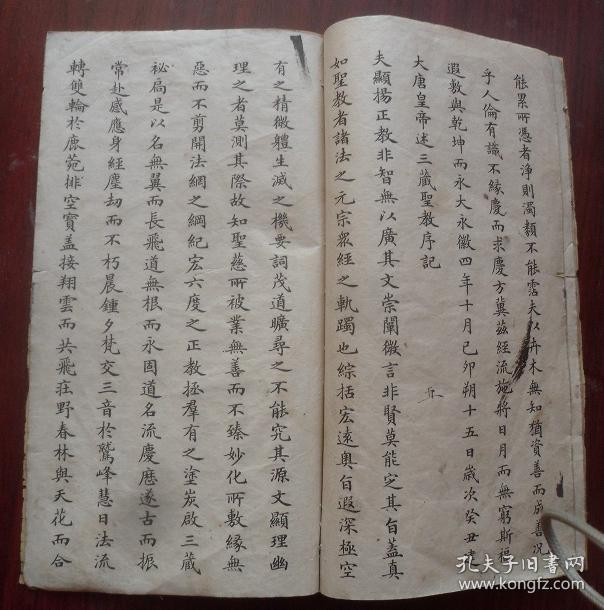 能累所憑者淨則濁類不能霑夫以卉木無知猶資善而成善況
乎人倫有識不緣慶而求慶方冀茲經流施將日月而無窮斯福
遐敷與乾坤而永大永徽四年十月己卯朔十五日歲次癸丑建
大唐皇帝述三藏聖教序記
夫顯揚正教非智無以廣其文崇闡微言非賢莫能定其旨蓋真
如聖教者諸法之元宗衆經之軌躅也綜括宏遠奧旨遐深極空
有之精微體生滅之機要詞茂道曠尋之不能究其源文顯理幽
理之者莫測其際故知聖慈所被業無善而不臻妙化所敷緣無
惡而不剪開法網之綱紀宏六度之正教拯羣有之塗炭啟三藏
祕扃是以名無翼而長飛道無根而永固道名流慶歷遂古而振
常赴感應身經塵劫而不朽晨鍾夕梵交三音於鷲峰慧日法流
轉雙輪於鹿菀排空寶盖接翔雲而共飛莊野春林與天花而合
孔夫子旧書网
www.kongfz.com